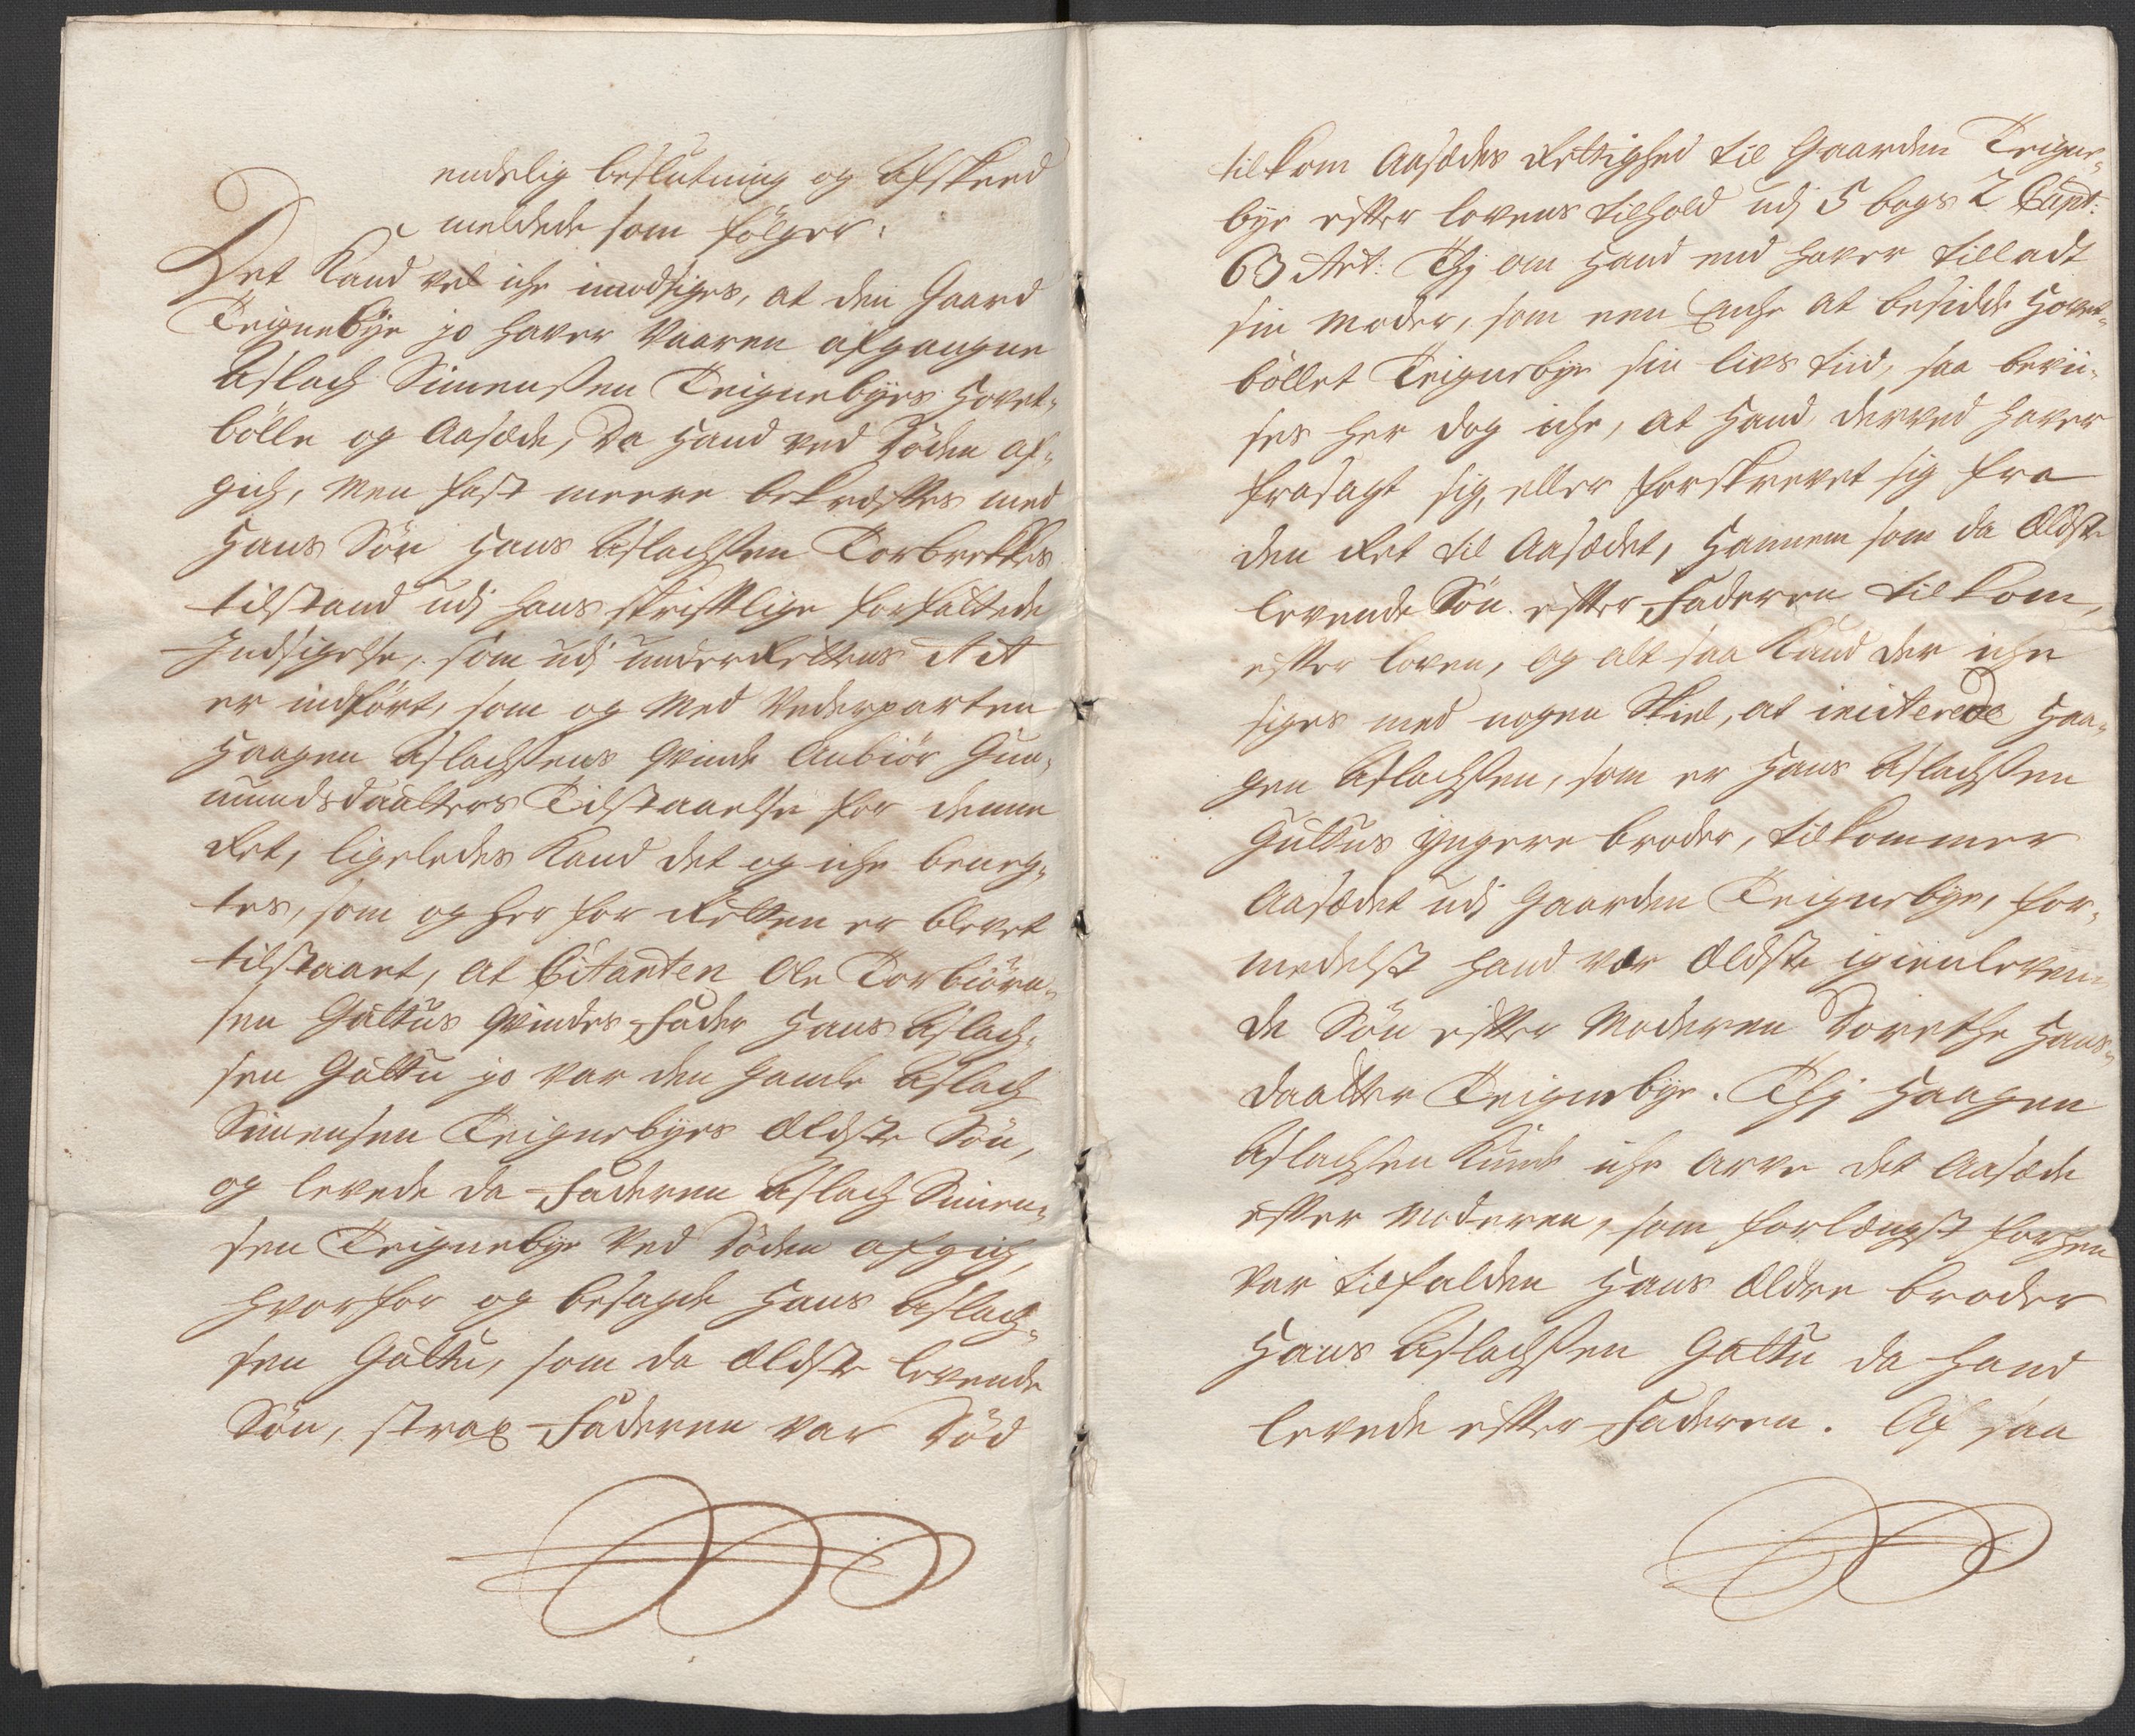 endelig beslutning og Afskeed
meldede som fölger:
Det Kand vel iche imodsiges, at den Gaard
Teignebÿe jo haver Vaaren afgangne
Aslach Simensßen Teignebÿes Hovet-
bölle og Aasæde, da hand ved döden af-
gich, Men fast meere bekræftes med
Hans Sön Hans Aslachsßen Torbrekkes
tilstand udj hans skriftlige forfattede
Indsigelse, som udj underRettens Act
er indfört, som og Med Vederparten
Haagen Aslachsßens qvinde Anbiör Gun-
mundsdaatters Tilstaaelse for denne
Ret, ligeledes Kand det og iche beneg-
tes, som og her for Retten er blevet
tilstaaet, at Citanten Ole Torbiörn-
sen Gulttus qvindes Fader Hans Aslach-
sen Gulttu jo var den gamle Aslach
Simensen Teignebÿes Eldste Sön,
og levede da Faderen Aslach Simen-
sen Teignebÿe Ved döden afgich,
hvorfor og besagde Hans Aslach-
sen Gulttu, som da Eldste levende
Sön, strax Faderen var död
tilkom Aasædes Rettighed til Gaarden Teigne-
bÿe efter lovens tilhold udj 5 bogs 2 Capt:
63 Art: Thj om Hand end haver tilladt
sin Moder, som een Enche at besidde Hovet-
böllet Teignebÿe sin livs tiid, saa bevii-
ses her dog iche, at Hand derved haver
frasagt sig, eller forskrevet sig fra
den Ret til Aasædet, Hannem som da Eldste
levende Sön efter Faderen tilkom,
efter loven, og alt saa Kand der iche
siges med nogen Skiel, at inciterede Haa-
gen Aslachsßen, som er Hans Aslachsßen
Gulttus ÿngere broder, tilkommer
Aasædet udj Gaarden Teignebÿe, for-
medelst hand var Eldste igienleven-
de Sön efter Moderen Dorethe Hans-
daatter Teignebÿe. Thj Haagen
Aslachsßen Kunde iche Arve det Aasæde
efter Moderen, som forlængst forhen
var tilfalden Hans Eldre broder
Hans Aslachsßen Gulttu da hand
levede efter Faderen. Af saa